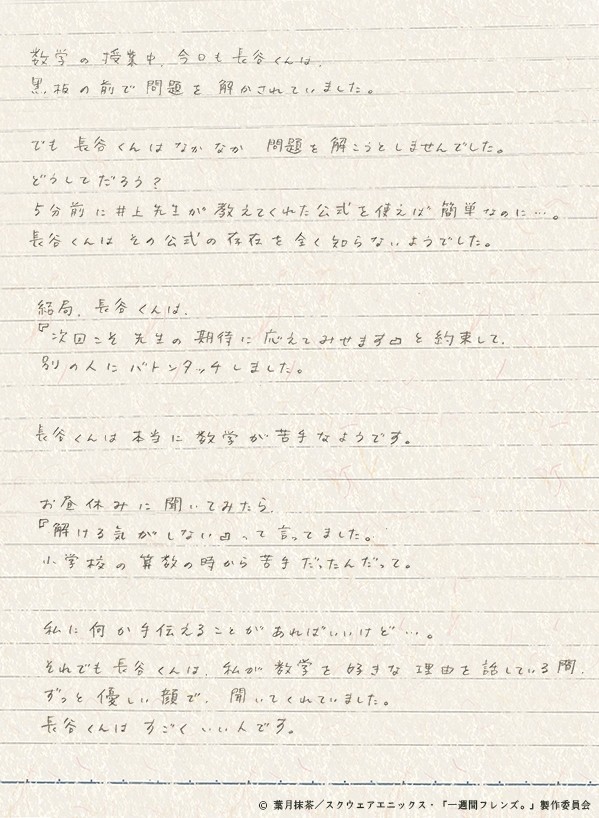 数学の授業中、今日も長谷くんは、
黒板の前で問題を解かされていました。
でも長谷くんはなかなか 問題を解こうとしませんでした。
どうしてだろう？
5分前に井上先生が教えてくれた公式を使えば簡単なのに…。
長谷くんはその公式の存在を全く知らないようでした。
結局、長谷くんは、
『次回こそ先生の期待に応えてみせます』と約束して、
別の人にバトンタッチしました。
長谷くんは本当に数学が苦手なようです。
お昼休みに聞いてみたら、
『解ける気がしない』って言ってました。
小学校の算数の時から苦手だったんだって。
私に何か手伝えることがあればいいけど…。
それでも長谷くんは、私が数学を好きな理由を話している間、
ずっと優しい顔で、聞いてくれていました。
長谷くんはすごくいい人です。
© 葉月抹茶／スクウェアエニックス・「一週間フレンズ。」製作委員会